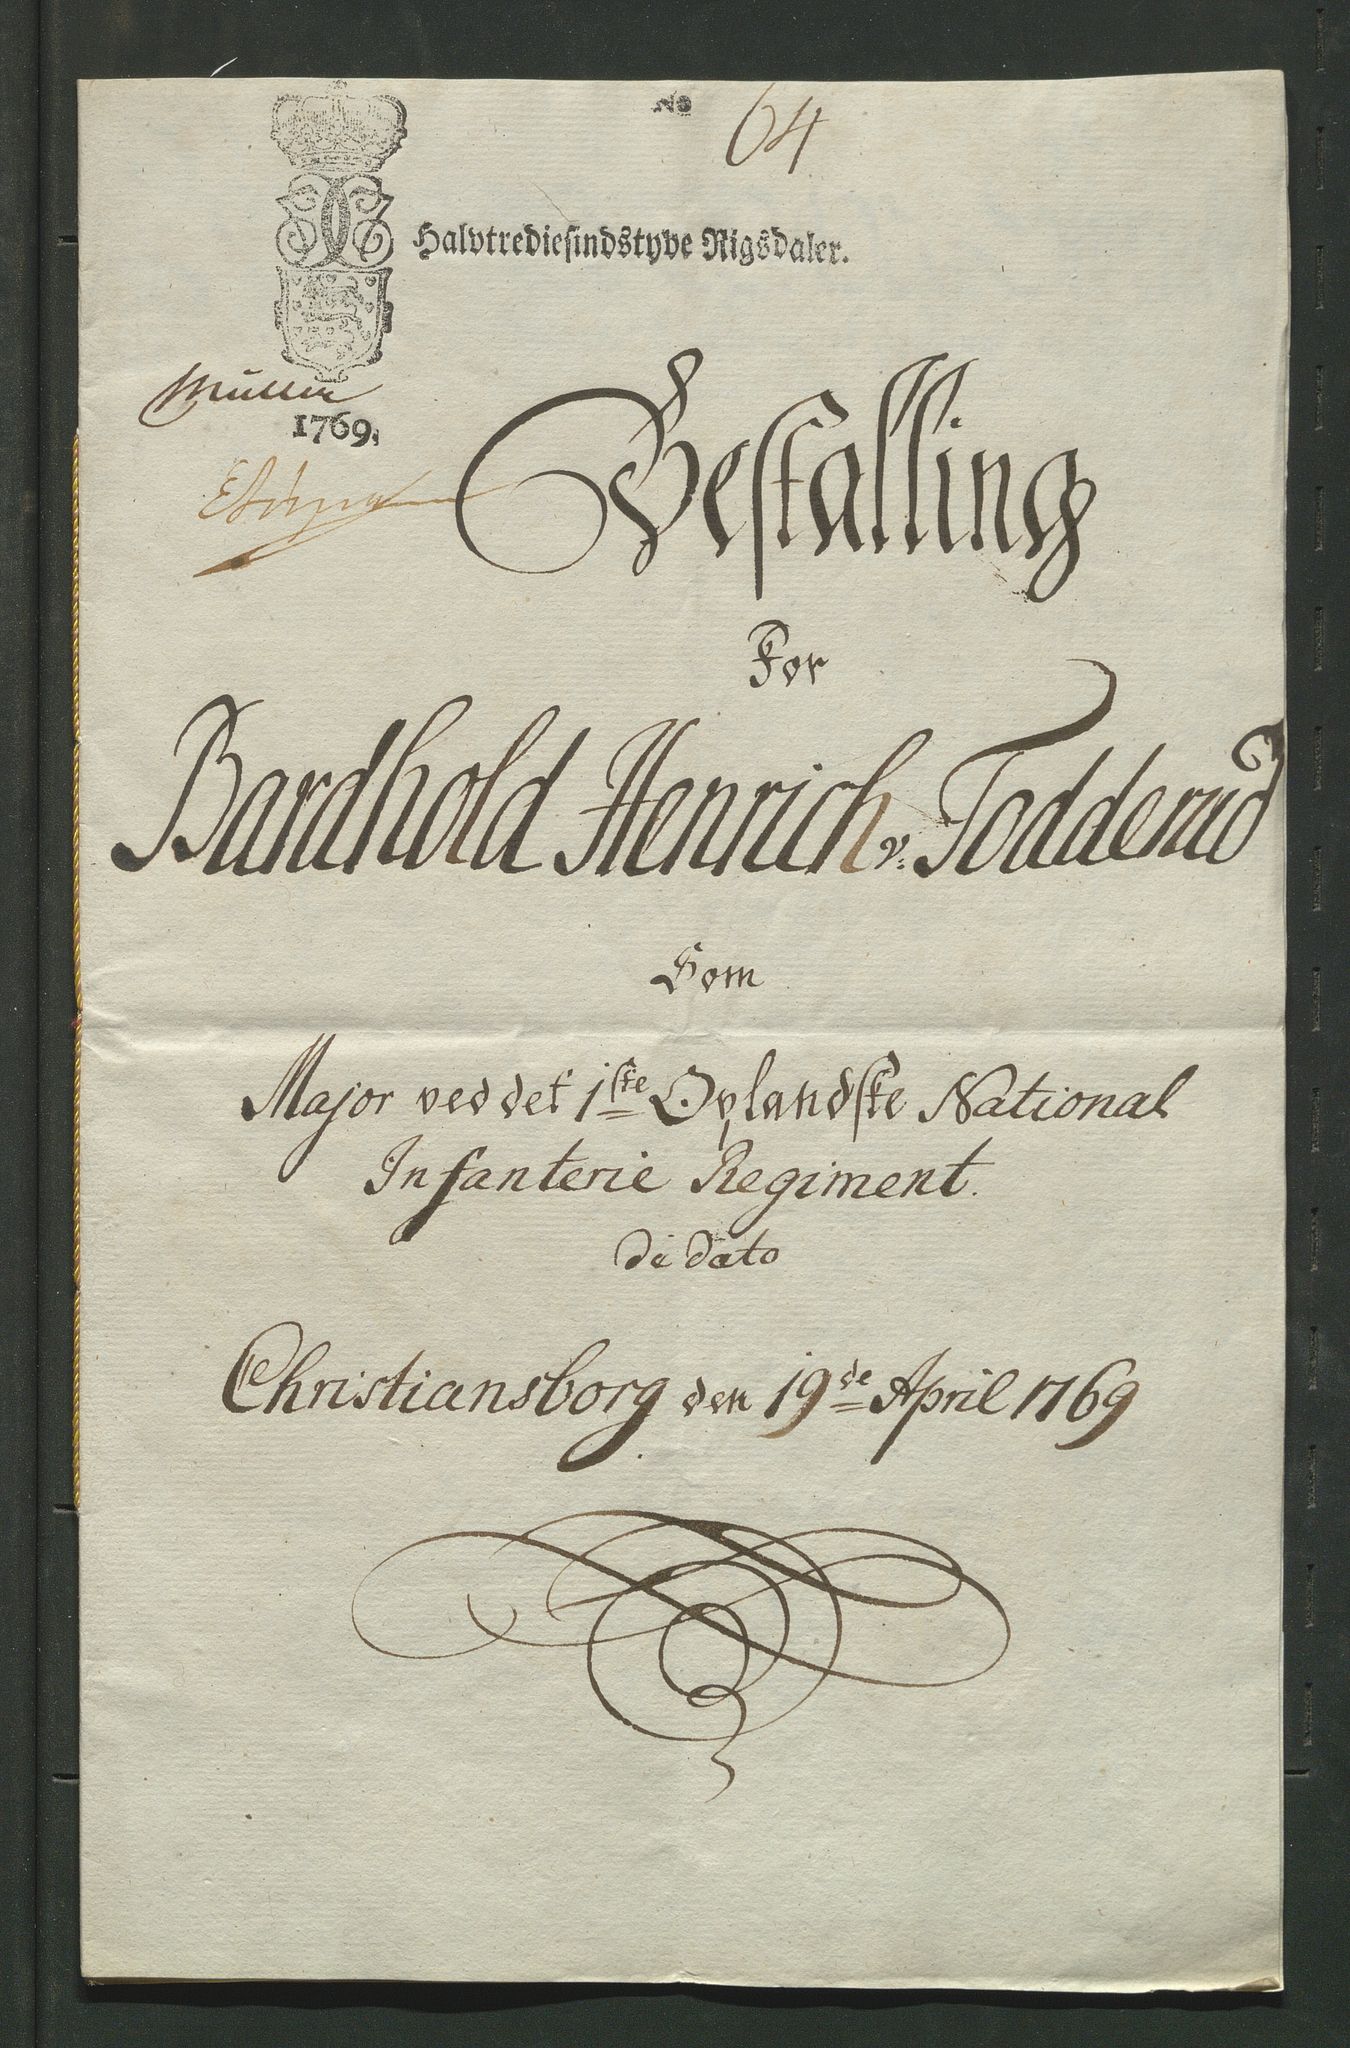 No 64
Halvtrediesindstyve Rigsdaler.
Müller
1769.
Bestalling
For
Bardhold Henrich v: Todderud
Som
Major ved det 1ste Oplandske National
Infanterie Regiment.
de dato
Christiansborg den 19de April 1769